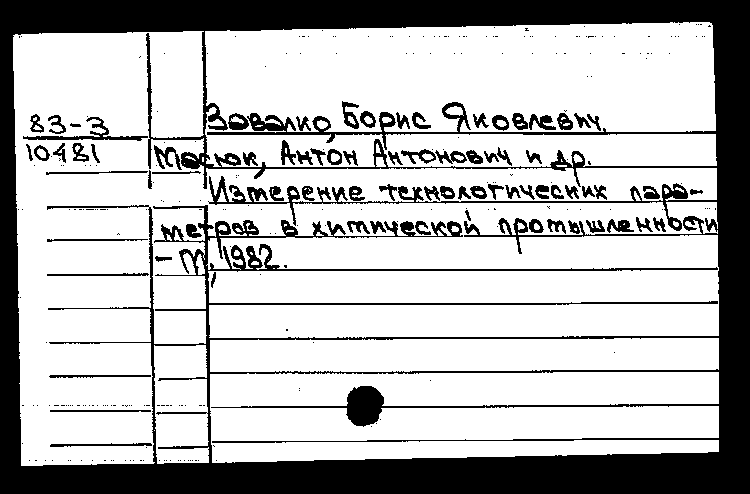 83-3
10481
Завалко, Борис Яковлевич.
Масюк, Антон Антонович и др.
Измерение технологических пара-
метров в химической промышленности
- М., 1982.